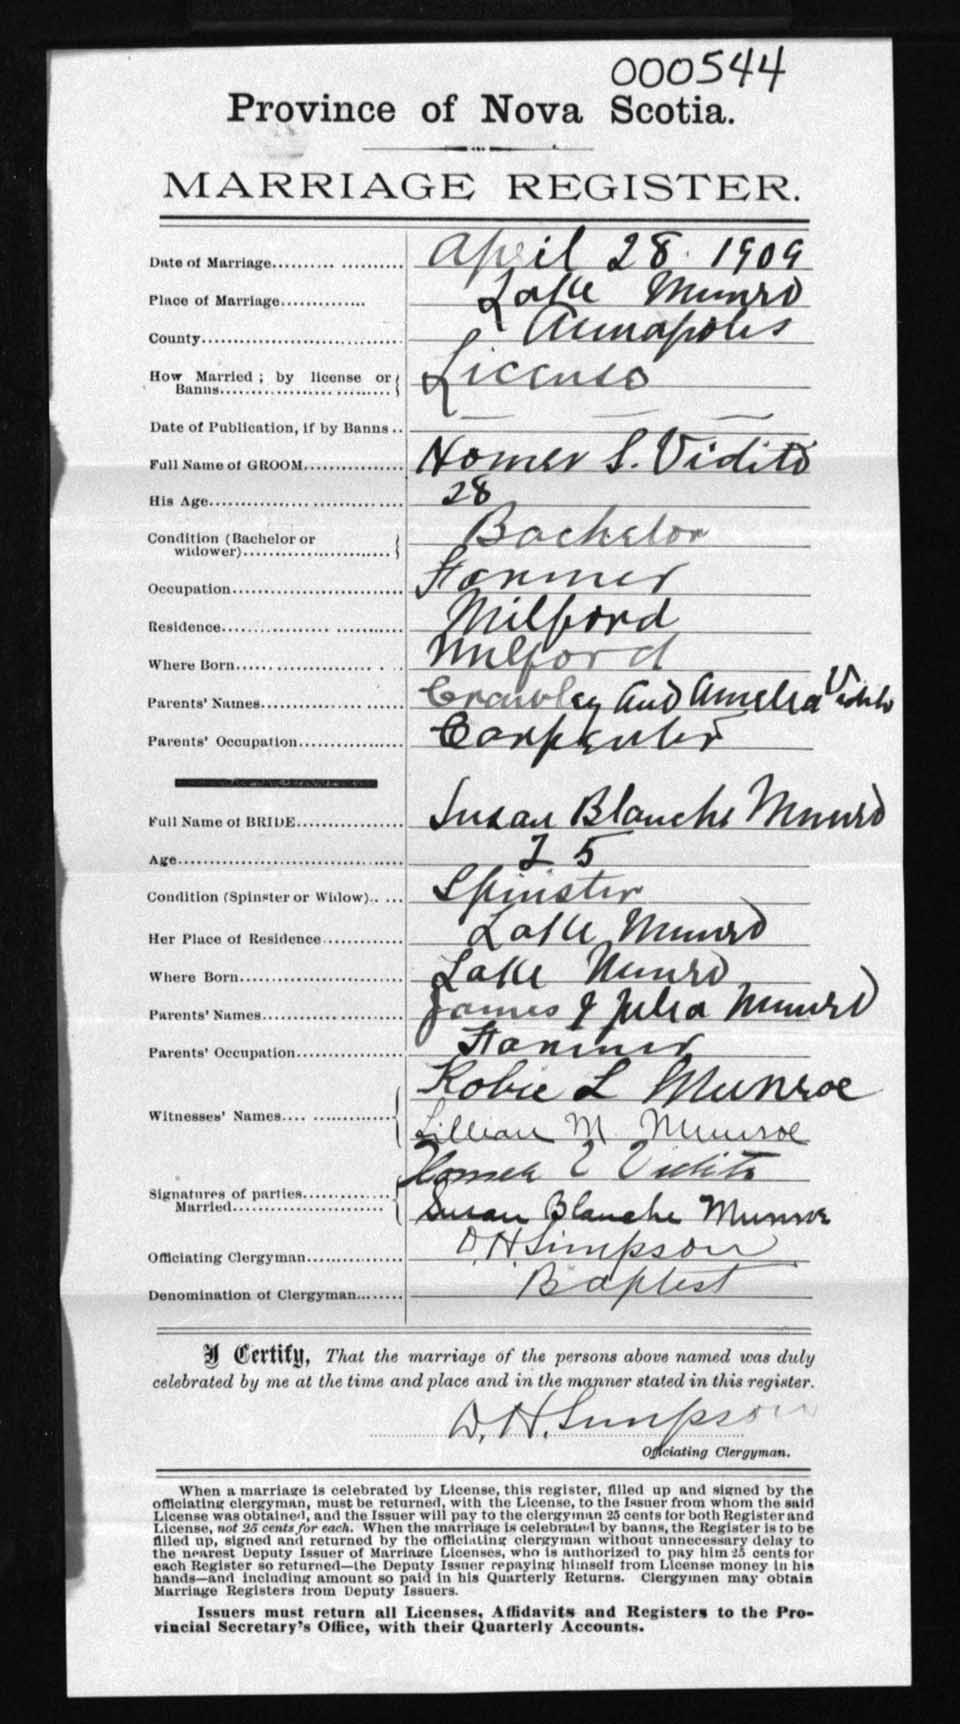 000544
Province of Nova Scotia.
MARRIAGE REGISTER.
Date of Marriage.......... ........... April 28. 1909
Place of Marriage............. Lake Munro
County.............................. Annapolis
How Married ; by license or Banns............................ License
Date of Publication, if by Banns .. — — —
Full Name of GROOM............... Homer S. Vidito
His Age............................. 28
Condition (Bachelor or widower)........................ Bachelor
Occupation.......................... Farmer
Residence................. ........... Milford
Where Born........................ Milford
Parents' Names..................... Crawley and Amelia Vidito
Parents' Occupation................ Carpenter
Full Name of BRIDE................ Susan Blanche Munro
Age.................................. 25
Condition (Spinster or Widow).. ... Spinster
Her Place of Residence............. Lake Munro
Where Born......................... Lake Munro
Parents' Names..................... James & Julia Munro
Parents' Occupation................ Farmer
Witnesses' Names.... ............. Robie L Munroe
Lillian M. Munroe
Signatures of parties Married........................ Homer Vidito
Susan Blanche Munroe
Officiating Clergyman............... D. H. Simpson
Denomination of Clergyman........ Baptist
I Certify, That the marriage of the persons above named was duly
celebrated by me at the time and place and in the manner stated in this register.
D. H. Simpson
Officiating Clergyman.
When a marriage is celebrated by License, this register, filled up and signed by the
officiating clergyman, must be returned, with the License, to the Issuer from whom the said
License was obtained, and the Issuer will pay to the clergyman 25 cents for both Register and
License, not 25 cents for each. When the marriage is celebrated by banns, the Register is to be
filled up, signed and returned by the officiating clergyman without unnecessary delay to
the nearest Deputy Issuer of Marriage Licenses, who is authorized to pay him 25 cents for
each Register so returned—the Deputy Issuer repaying himself from License money in his
hands—and including amount so paid in his Quarterly Returns. Clergymen may obtain
Marriage Registers from Deputy Issuers.
Issuers must return all Licenses, Affidavits and Registers to the Pro-
vincial Secretary's Office, with their Quarterly Accounts.